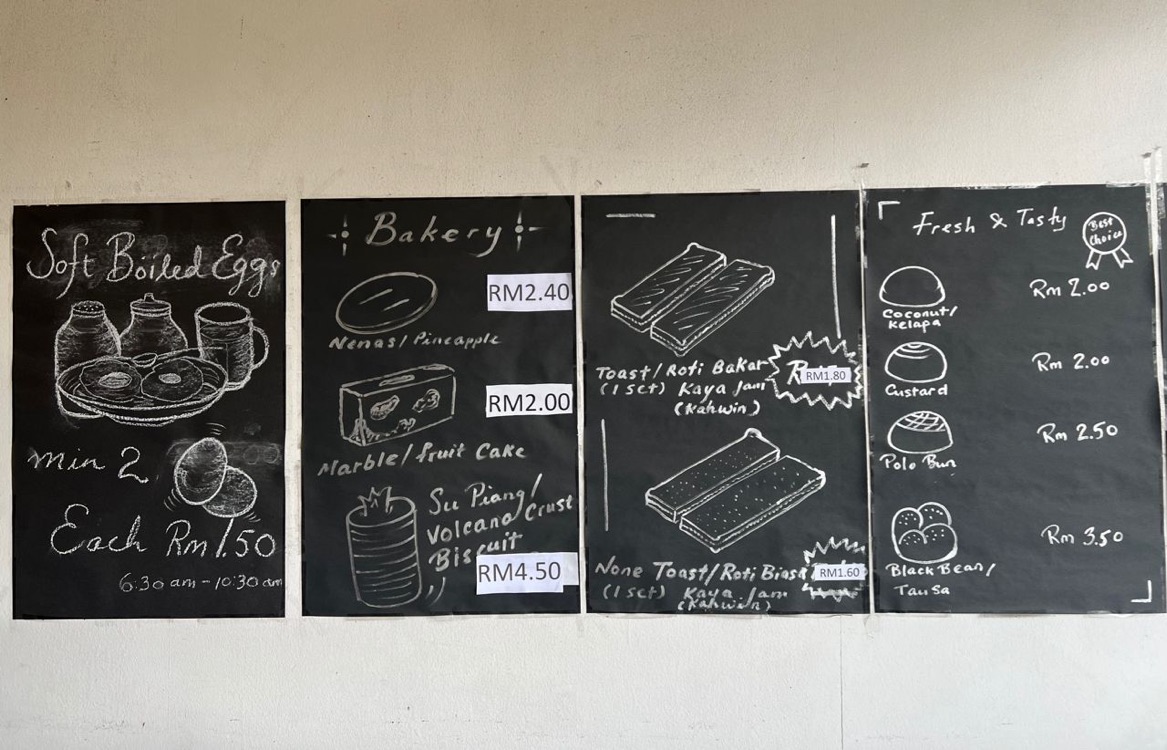 Soft Boiled Eggs
min 2
Each Rm 1.50
6:30 am - 10:30 am
Bakery
RM2.40
Nenas/Pineapple
RM2.00
Marble/fruit Cake
Su Piang/
Volcano Crust
Biscuit
RM4.50
Toast/Roti Bakar
(1 Set) Kaya Jam
(Kahwin)
RM1.80
None Toast/Roti Biasa
(1 Set) Kaya Jam
(Kahwin)
RM1.60
Fresh & Tasty
Best
Choice
Coconut/
Kelapa
Rm 2.00
Custard
Rm 2.00
Polo Bun
Rm 2.50
Black Bean/
Tausa
Rm 3.50